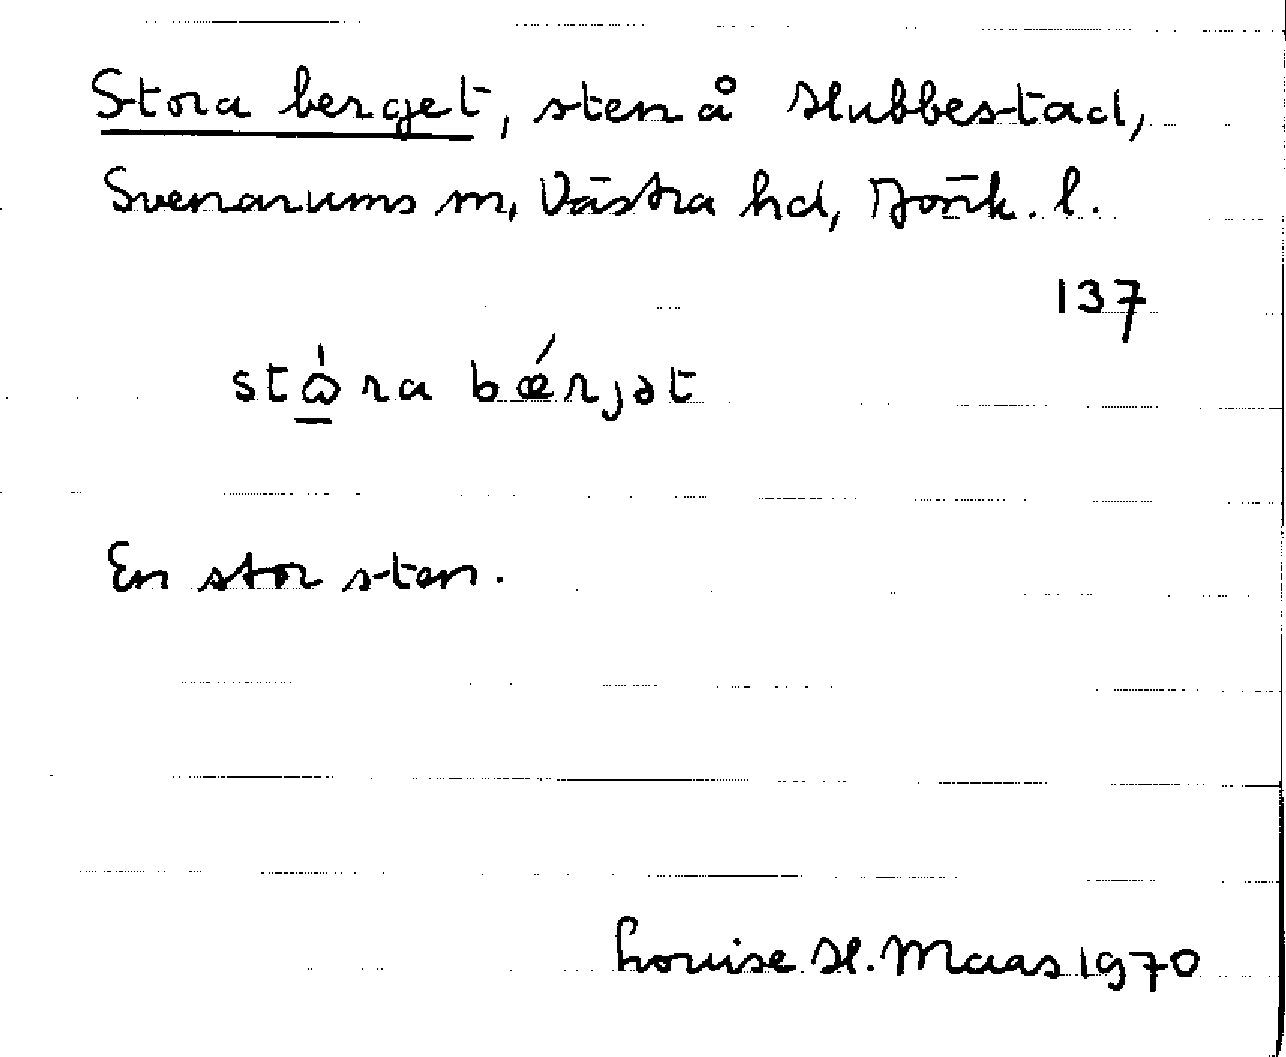 Stora berget, sten å Hubbestad,
Svenarums sn, Västra hd, Jönk. l.
137
stɷ̀ra bǽrjət
En stor sten.
Louise H. Maas 1970